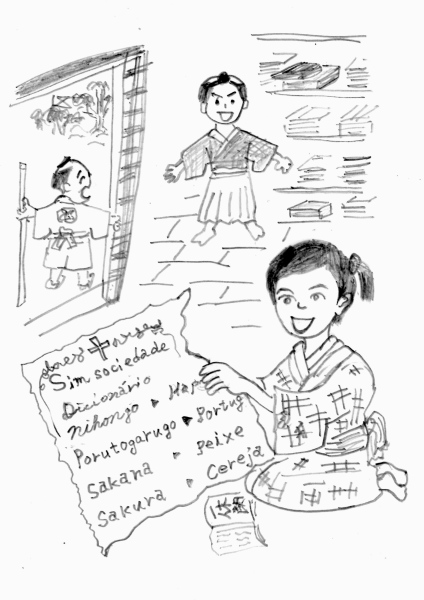 Sim sociedade
Dicionário
Nihongo ▶
Porutogarugo ▶ Portug
Sakana ▶ Peixe
Sakura ▶ Cereja